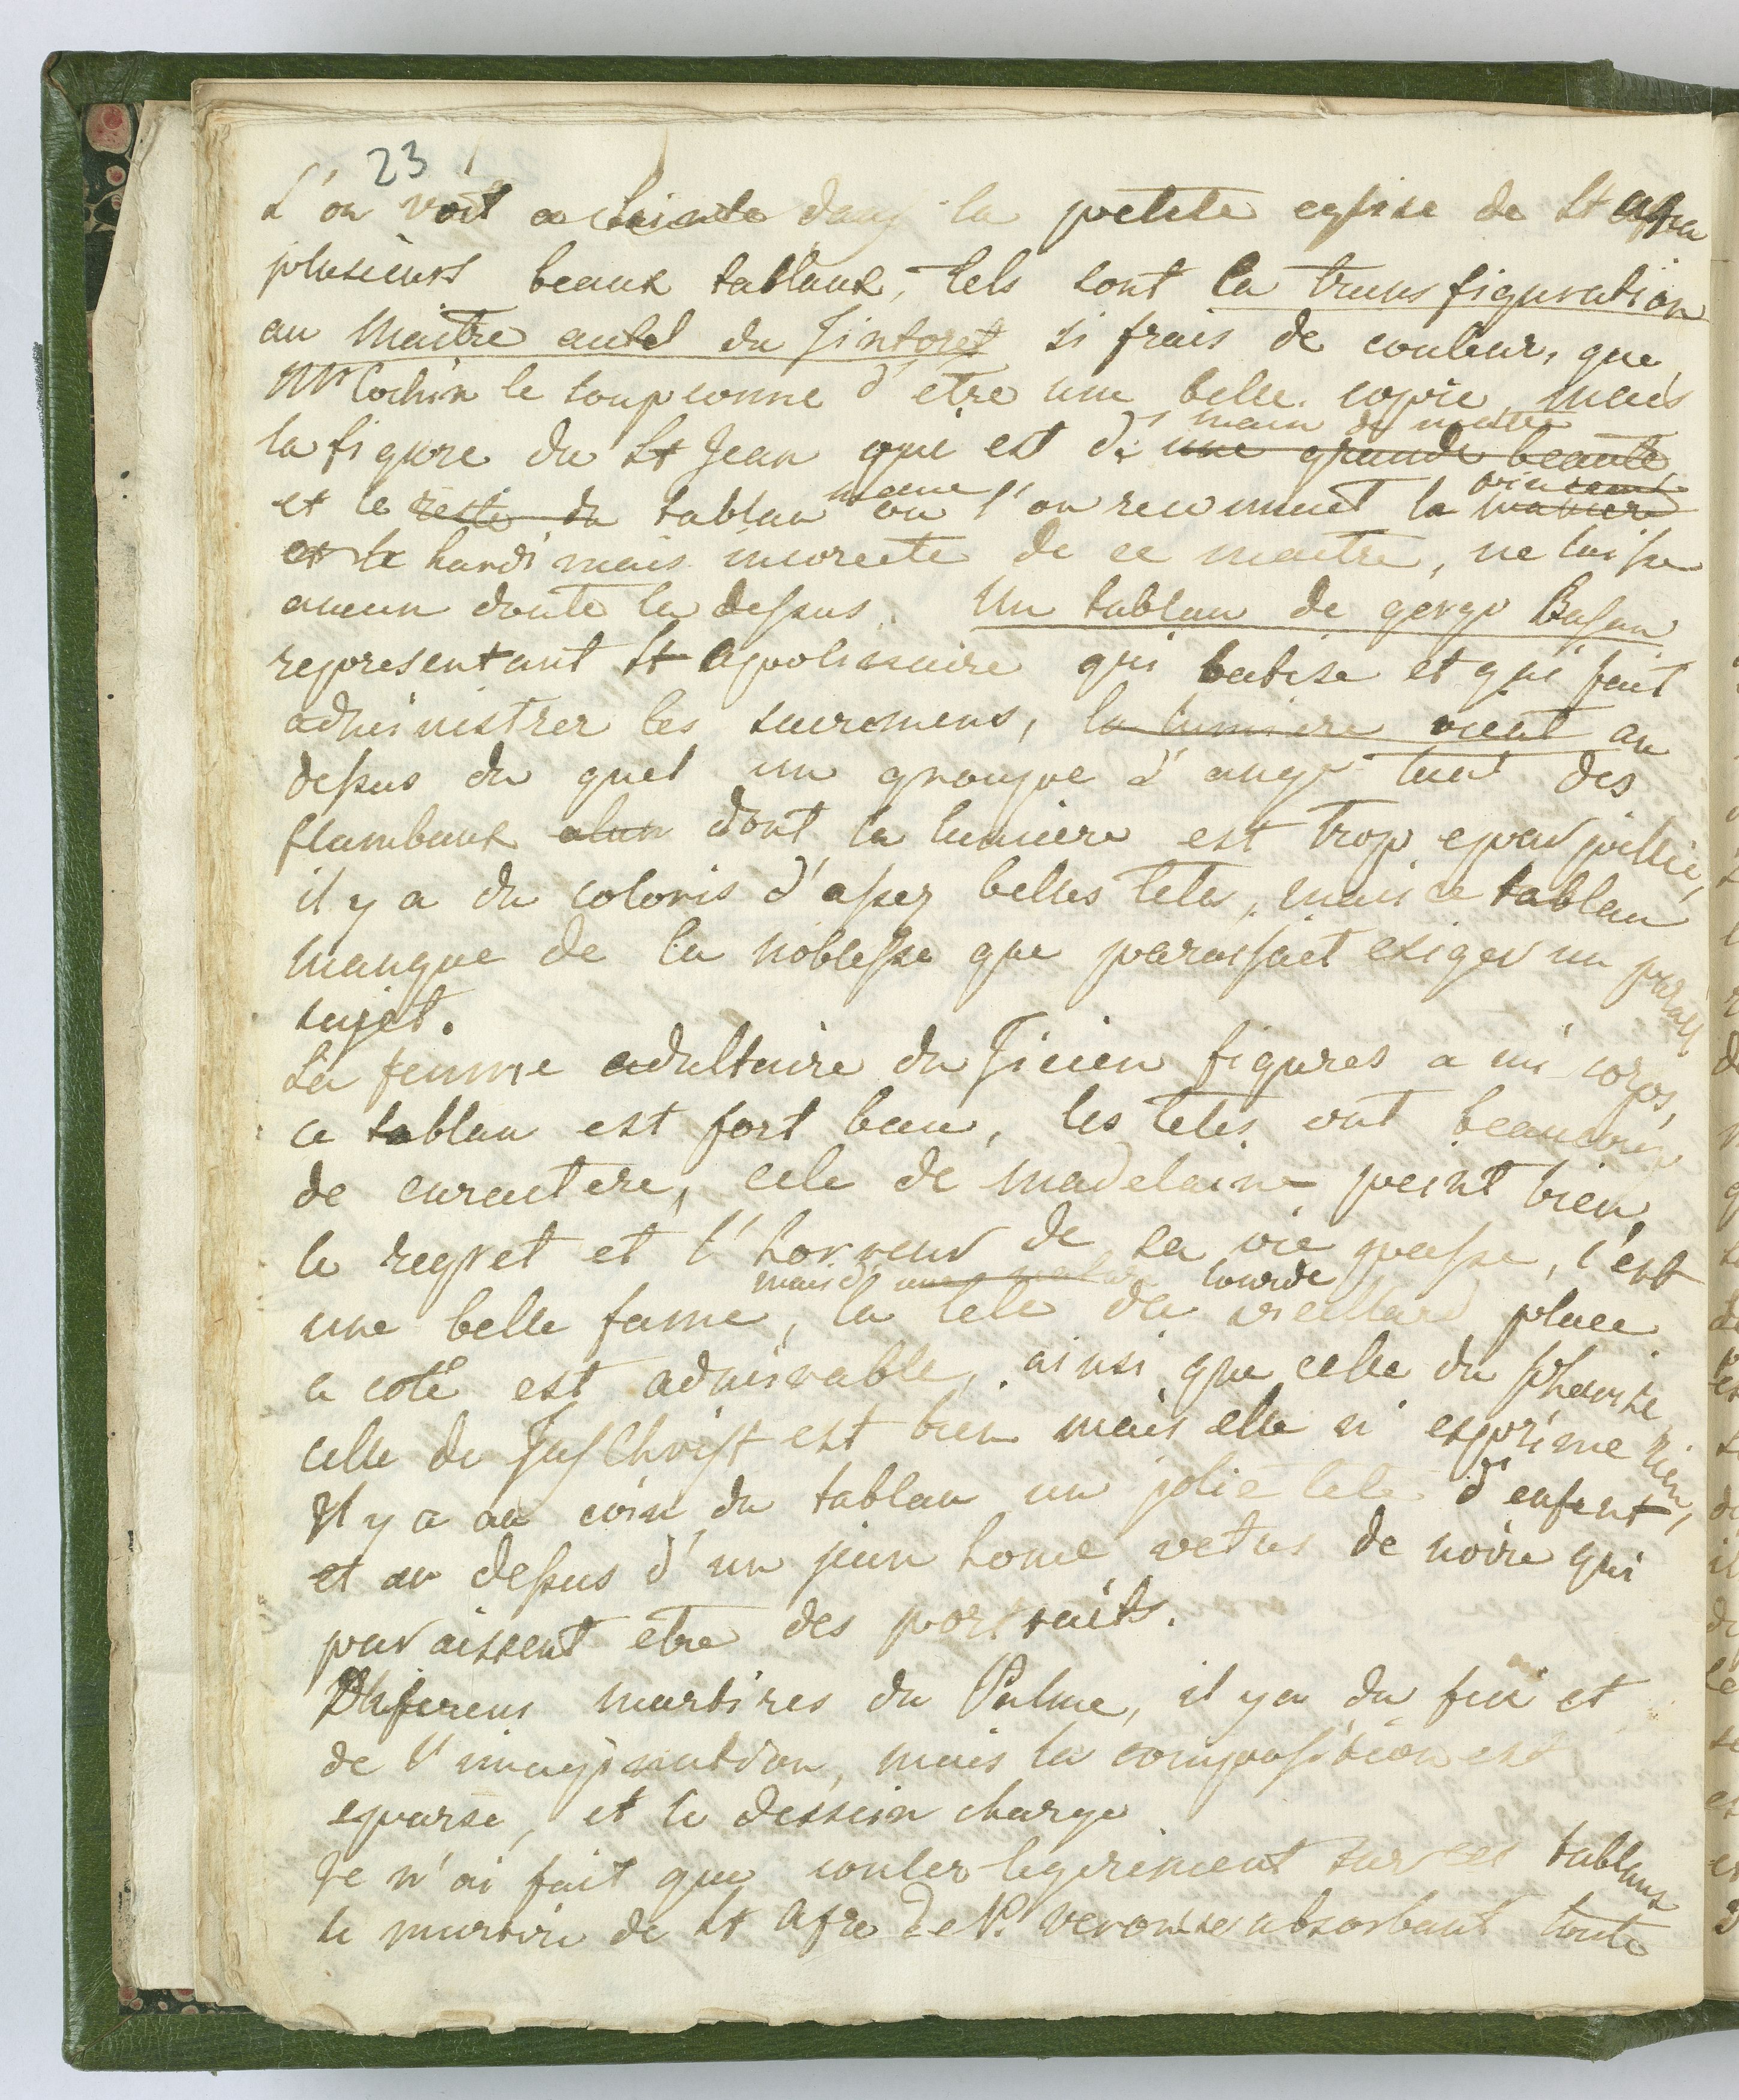 23
L'on voit a dans la petite eglise de St Afra
plusieurs beaux tablaux, tels sont la transfiguration
au Maitre autel du Tintoret si frais de couleur, que
Mr Cochin le soupconne d'etre une belle copie mais
main de maitre
la figure du St Jean qui est de une grande beauté
et le reste du tablau meme ou l'on reconnuet la maniere
et le hardi mais incorecte de ce maitre, ne laisse
aucun doute la dessus. Un tablau de gergo Basan
representant St Apolinaire qui batise et qui fait
administrer les sacremens, la lumiere vient au
dessus du quel un groupe d'ange tient des
flambaux dont la lumiere est trop eparpillié,
il y a du coloris d'assez belles tetes, mais ce tablau
manque de la noblesse que paraissait exiger un pareil
sujet.
La femme adultaire du Ticien figures a mi corps,
ce tablau est fort beau, les tetes ont beaucoup
de caractere, cele de Madelaine peint bien
le regret et l'horreur de sa vie passe, c'est
mais une lourde
une belle fame, la tete du vieillard place
a coté est admirable, ainsi que celle du phariste
celle de Jus Christ est bien mais elle n'exprime rien,
Il y a au coin du tablau un jolie tete d'enfent,
et au dessus d'un jeun home vetus de noire qui
paraissent etre des portraits.
Diferens martires du Palme, il y a du feu et
de l'imagination, mais la composition est
eparse, et le dessein charge
Je n'ai fait que couler legerement sur ces tablaux
le martire de St Afre de P. Veronese absorbant toute